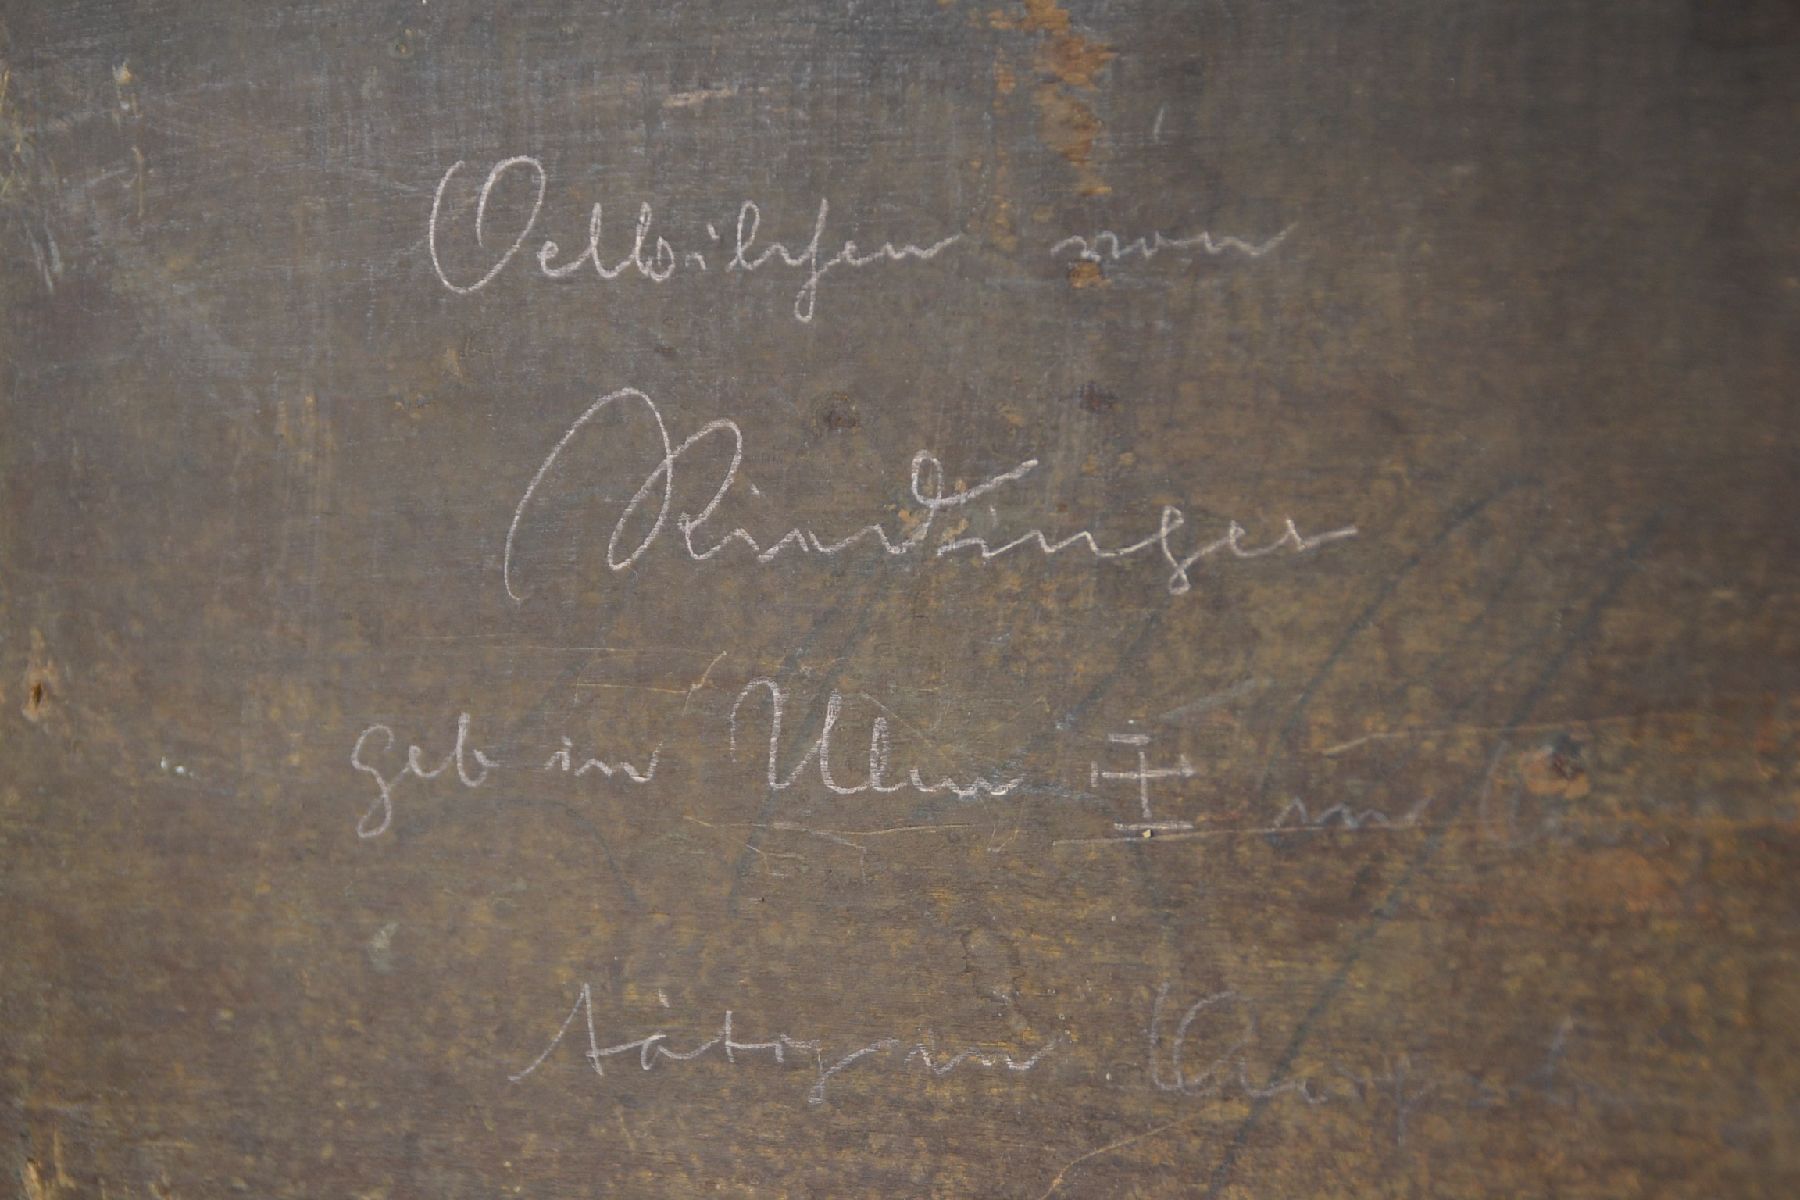 Oelbildchen von
Riedinger
geb in Ulm ‡ in
tätig in Augsb